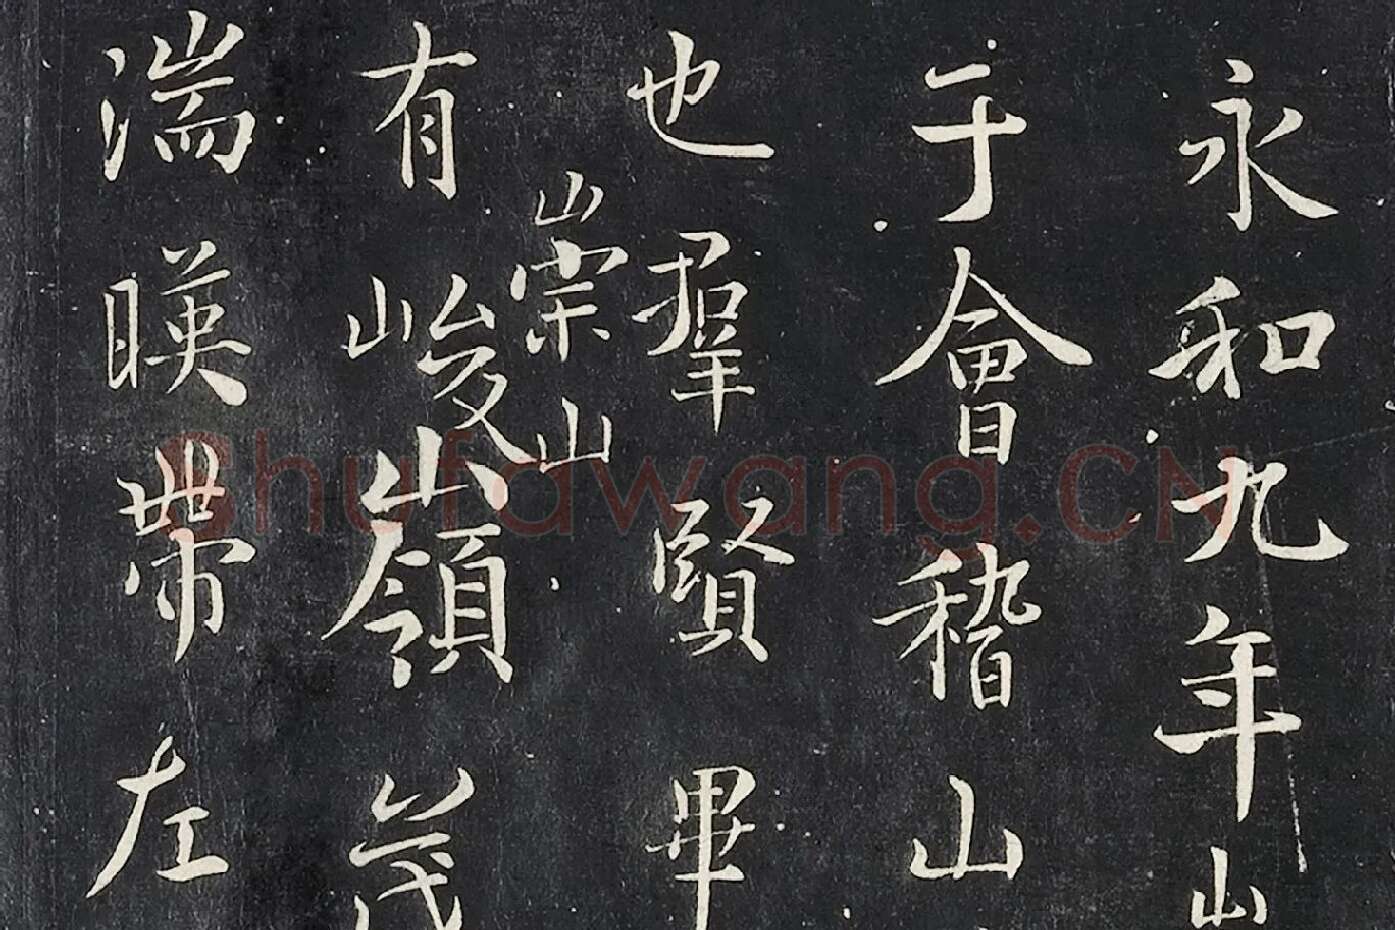 永和九年
于會稽山
也羣賢畢
崇山
有峻嶺茂
湍暎帶左
Shufawang.CN